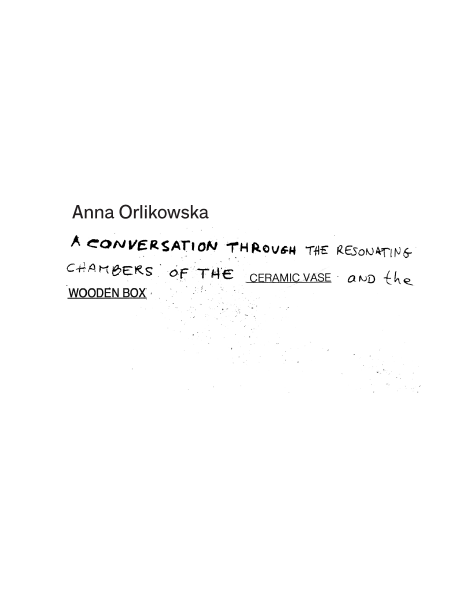 Anna Orlikowska
A CONVERSATION THROUGH THE RESONATING
CHAMBERS OF THE CERAMIC VASE AND the
WOODEN BOX